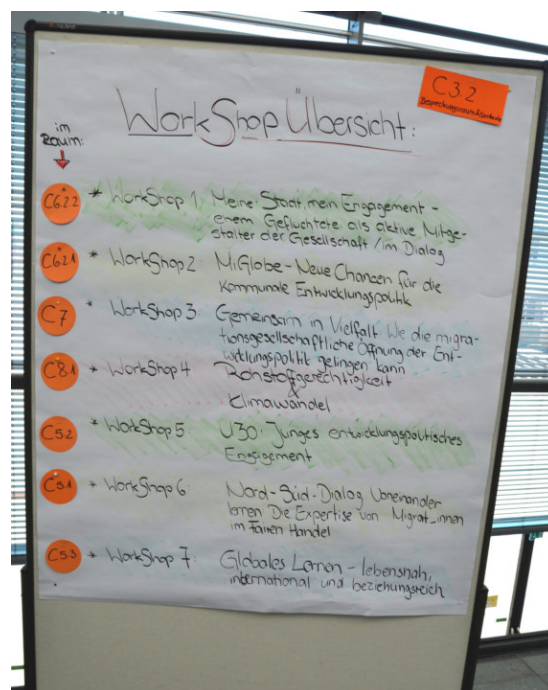 C3.2
WorkShop Übersicht:
im
Raum:
C6.2.2 * WorkShop 1. Meine Stadt, mein Engagement -
ehem Geflüchtete als aktive Mitge-
stalter der Gesellschaft / im Dialog
C6.2.1 * WorkShop 2: MiGlobe - Neue Chancen für die
Kommunale Entwicklungspolitik
C7 * WorkShop 3: Gemeinsam in Vielfalt. Wie die migra-
tionsgesellschaftliche Öffnung der Ent-
wicklungspolitik gelingen kann
C8.1 * WorkShop 4 Rohstoffgerechtigkeit
&
Klimawandel
C5.2 * WorkShop 5 Ü30. Junges entwicklungspolitisches
Engagement
C5.1 * WorkShop 6 Nord-Süd-Dialog Voneinander
lernen Die Expertise von Migrat_innen
im Fairen Handel
C5.3 * WorkShop 7: Globales Lernen - lebensnah,
international und beziehungsreich